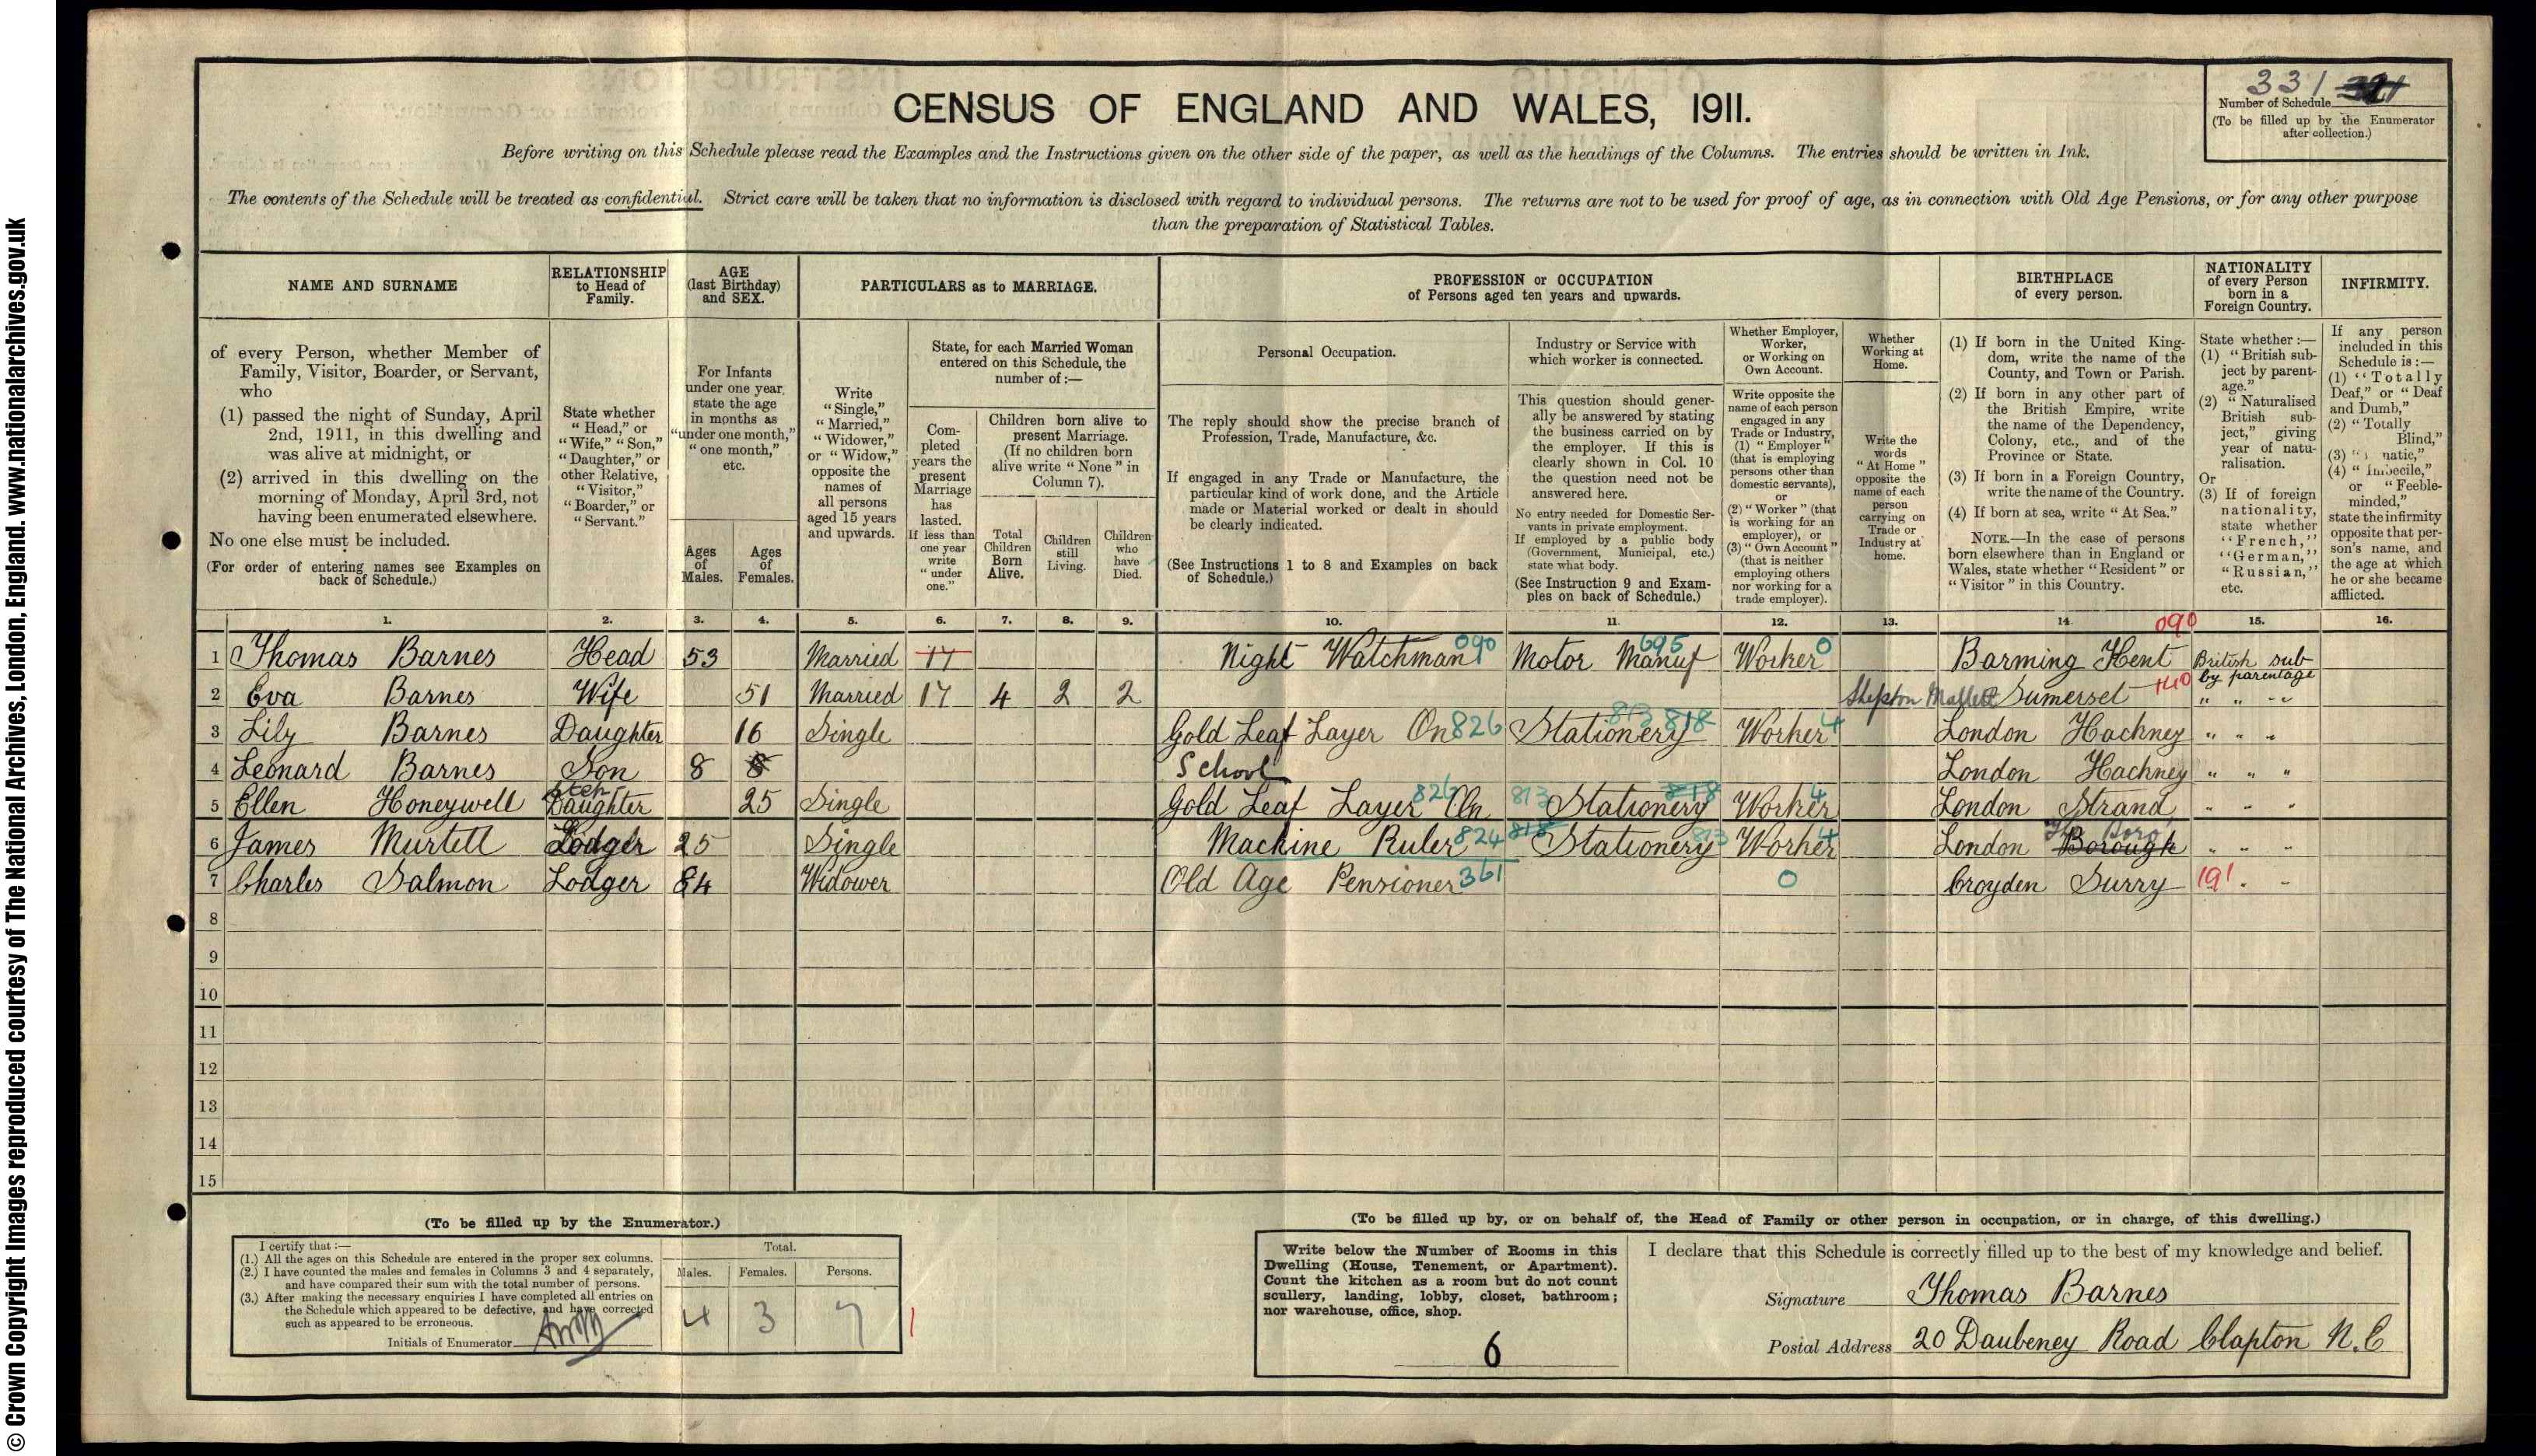 © Crown Copyright Images reproduced courtesy of The National Archives, London, England. www.nationalarchives.gov.uk
331
Number of Schedule
(To be filled up by the Enumerator
after collection.)
CENSUS OF ENGLAND AND WALES, 1911.
Before writing on this Schedule please read the Examples and the Instructions given on the other side of the paper, as well as the headings of the Columns. The entries should be written in Ink.
The contents of the Schedule will be treated as confidential. Strict care will be taken that no information is disclosed with regard to individual persons. The returns are not to be used for proof of age, as in connection with Old Age Pensions, or for any other purpose
than the preparation of Statistical Tables.
NAME AND SURNAME
of every Person, whether Member of
Family, Visitor, Boarder, or Servant,
who
(1) passed the night of Sunday, April
2nd, 1911, in this dwelling and
was alive at midnight, or
(2) arrived in this dwelling on the
morning of Monday, April 3rd, not
having been enumerated elsewhere.
No one else must be included.
(For order of entering names see Examples on
back of Schedule.)
RELATIONSHIP
to Head of
Family.
State whether
"Head," or
"Wife," "Son,"
"Daughter," or
other Relative,
"Visitor,"
"Boarder," or
"Servant."
AGE
(last Birthday)
and SEX.
For Infants
under one year
state the age
in months as
"under one month,"
"one month,"
etc.
Ages
of
Males.
Ages
of
Females.
PARTICULARS as to MARRIAGE.
Write
"Single,"
"Married,"
"Widower,"
or "Widow,"
opposite the
names of
all persons
aged 15 years
and upwards.
State, for each Married Woman
entered on this Schedule, the
number of:—
Com-
pleted
years the
present
Marriage
has
lasted.
If less than
one year
write
"under
one."
Children born alive to
present Marriage.
(If no children born
alive write "None" in
Column 7).
Total
Children
Born
Alive.
Children
still
Living.
Children
who
have
Died.
PROFESSION or OCCUPATION
of Persons aged ten years and upwards.
Personal Occupation.
The reply should show the precise branch of
Profession, Trade, Manufacture, &c.
If engaged in any Trade or Manufacture, the
particular kind of work done, and the Article
made or Material worked or dealt in should
be clearly indicated.
(See Instructions 1 to 8 and Examples on back
of Schedule.)
Industry or Service with
which worker is connected.
This question should gener-
ally be answered by stating
the business carried on by
the employer. If this is
clearly shown in Col. 10
the question need not be
answered here.
No entry needed for Domestic Ser-
vants in private employment.
If employed by a public body
(Government, Municipal, etc.)
state what body.
(See Instruction 9 and Exam-
ples on back of Schedule.)
Whether Employer,
Worker,
or Working on
Own Account.
Write opposite the
name of each person
engaged in any
Trade or Industry,
(1) "Employer"
(that is employing
persons other than
domestic servants),
or
(2) "Worker" (that
is working for an
employer), or
(3) "Own Account"
(that is neither
employing others
nor working for a
trade employer).
Whether
Working at
Home.
Write the
words
"At Home"
opposite the
name of each
person
carrying on
Trade or
Industry at
home.
BIRTHPLACE
of every person.
(1) If born in the United King-
dom, write the name of the
County, and Town or Parish.
(2) If born in any other part of
the British Empire, write
the name of the Dependency,
Colony, etc., and of the
Province or State.
(3) If born in a Foreign Country,
write the name of the Country.
(4) If born at sea, write "At Sea."
NOTE.—In the case of persons
born elsewhere than in England or
Wales, state whether "Resident" or
"Visitor" in this Country.
NATIONALITY
of every Person
born in a
Foreign Country.
State whether:—
(1) "British sub-
ject by parent-
age."
(2) "Naturalised
British sub-
ject," giving
year of natu-
ralisation.
Or
(3) If of foreign
nationality,
state whether
"French,"
"German,"
"Russian,"
etc.
INFIRMITY.
If any person
included in this
Schedule is:—
(1) "Totally
Deaf," or "Deaf
and Dumb,"
(2) "Totally
Blind,"
(3) "natic,"
(4) "Imbecile,"
or "Feeble-
minded,"
state the infirmity
opposite that per-
son's name, and
the age at which
he or she became
afflicted.
1. 2. 3. 4. 5. 6. 7. 8. 9. 10. 11. 12. 13. 14. 15. 16.
1 Thomas Barnes Head 53 Married 17 Night Watchman 090 Motor Manuf 695 Worker 0 Barming Kent 090 British sub
by parentage
2 Eva Barnes Wife 51 Married 17 4 2 2 Shepton Mallett Sumerset 140 " " "
3 Lily Barnes Daughter 16 Single Gold Leaf Layer On 826 Stationery 813 818 Worker 4 London Hackney " " "
4 Leonard Barnes Son 8 8 School London Hackney " " "
5 Ellen Honeywell Step Daughter 25 Single Gold Leaf Layer On 826 813 Stationery 818 Worker 4 London Strand " " "
6 James Murtell Lodger 25 Single Machine Ruler 824 818 Stationery 813 Worker 4 London Borough " " "
7 Charles Salmon Lodger 84 Widower Old Age Pensioner 361 0 Croyden Surry 191
8
9
10
11
12
13
14
15
(To be filled up by the Enumerator.)
I certify that:—
(1.) All the ages on this Schedule are entered in the proper sex columns.
(2.) I have counted the males and females in Columns 3 and 4 separately,
and have compared their sum with the total number of persons.
(3.) After making the necessary enquiries I have completed all entries on
the Schedule which appeared to be defective, and have corrected
such as appeared to be erroneous.
Initials of Enumerator
Total.
Males. Females. Persons.
4 3 7
(To be filled up by, or on behalf of, the Head of Family or other person in occupation, or in charge, of this dwelling.)
Write below the Number of Rooms in this
Dwelling (House, Tenement, or Apartment).
Count the kitchen as a room but do not count
scullery, landing, lobby, closet, bathroom;
nor warehouse, office, shop.
6
I declare that this Schedule is correctly filled up to the best of my knowledge and belief.
Signature Thomas Barnes
Postal Address 20 Daubeney Road Clapton N.E